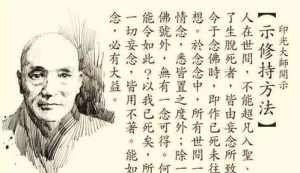 印光大師開示
【示修持方法】
人在世間，不能超凡入聖、
了生脫死者，皆由妄念所致
今于念佛時，即作已死未往
想。於念念中，所有世間一
情念，悉皆置之度外；除一
佛號外，無有一念可得。何
能令如此？以我已死矣，所
一切妄念，皆用不著。能如
念，必有大益。